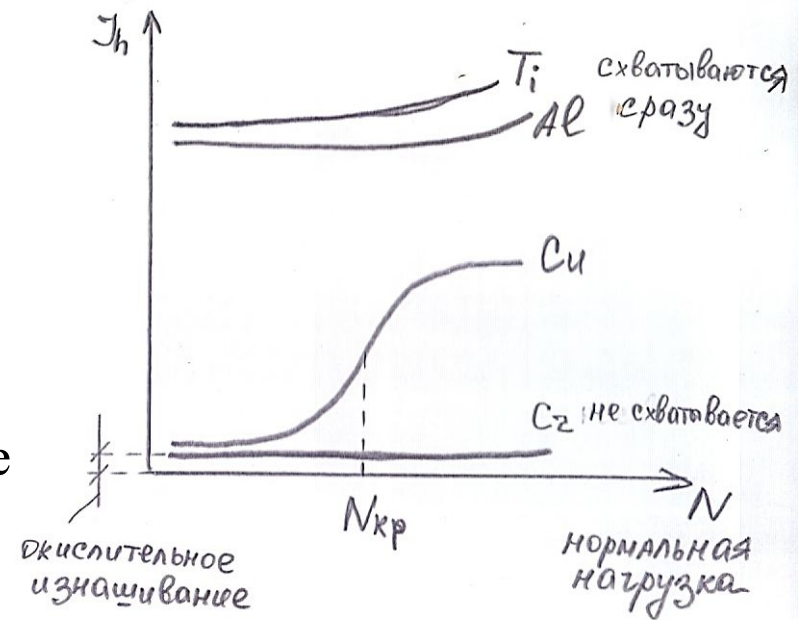 Jh
Ti
схватываются
сразу
Al
Cu
Cr не схватывается
е
Nкр
N
окислительное
изнашивание
нормальная
нагрузка